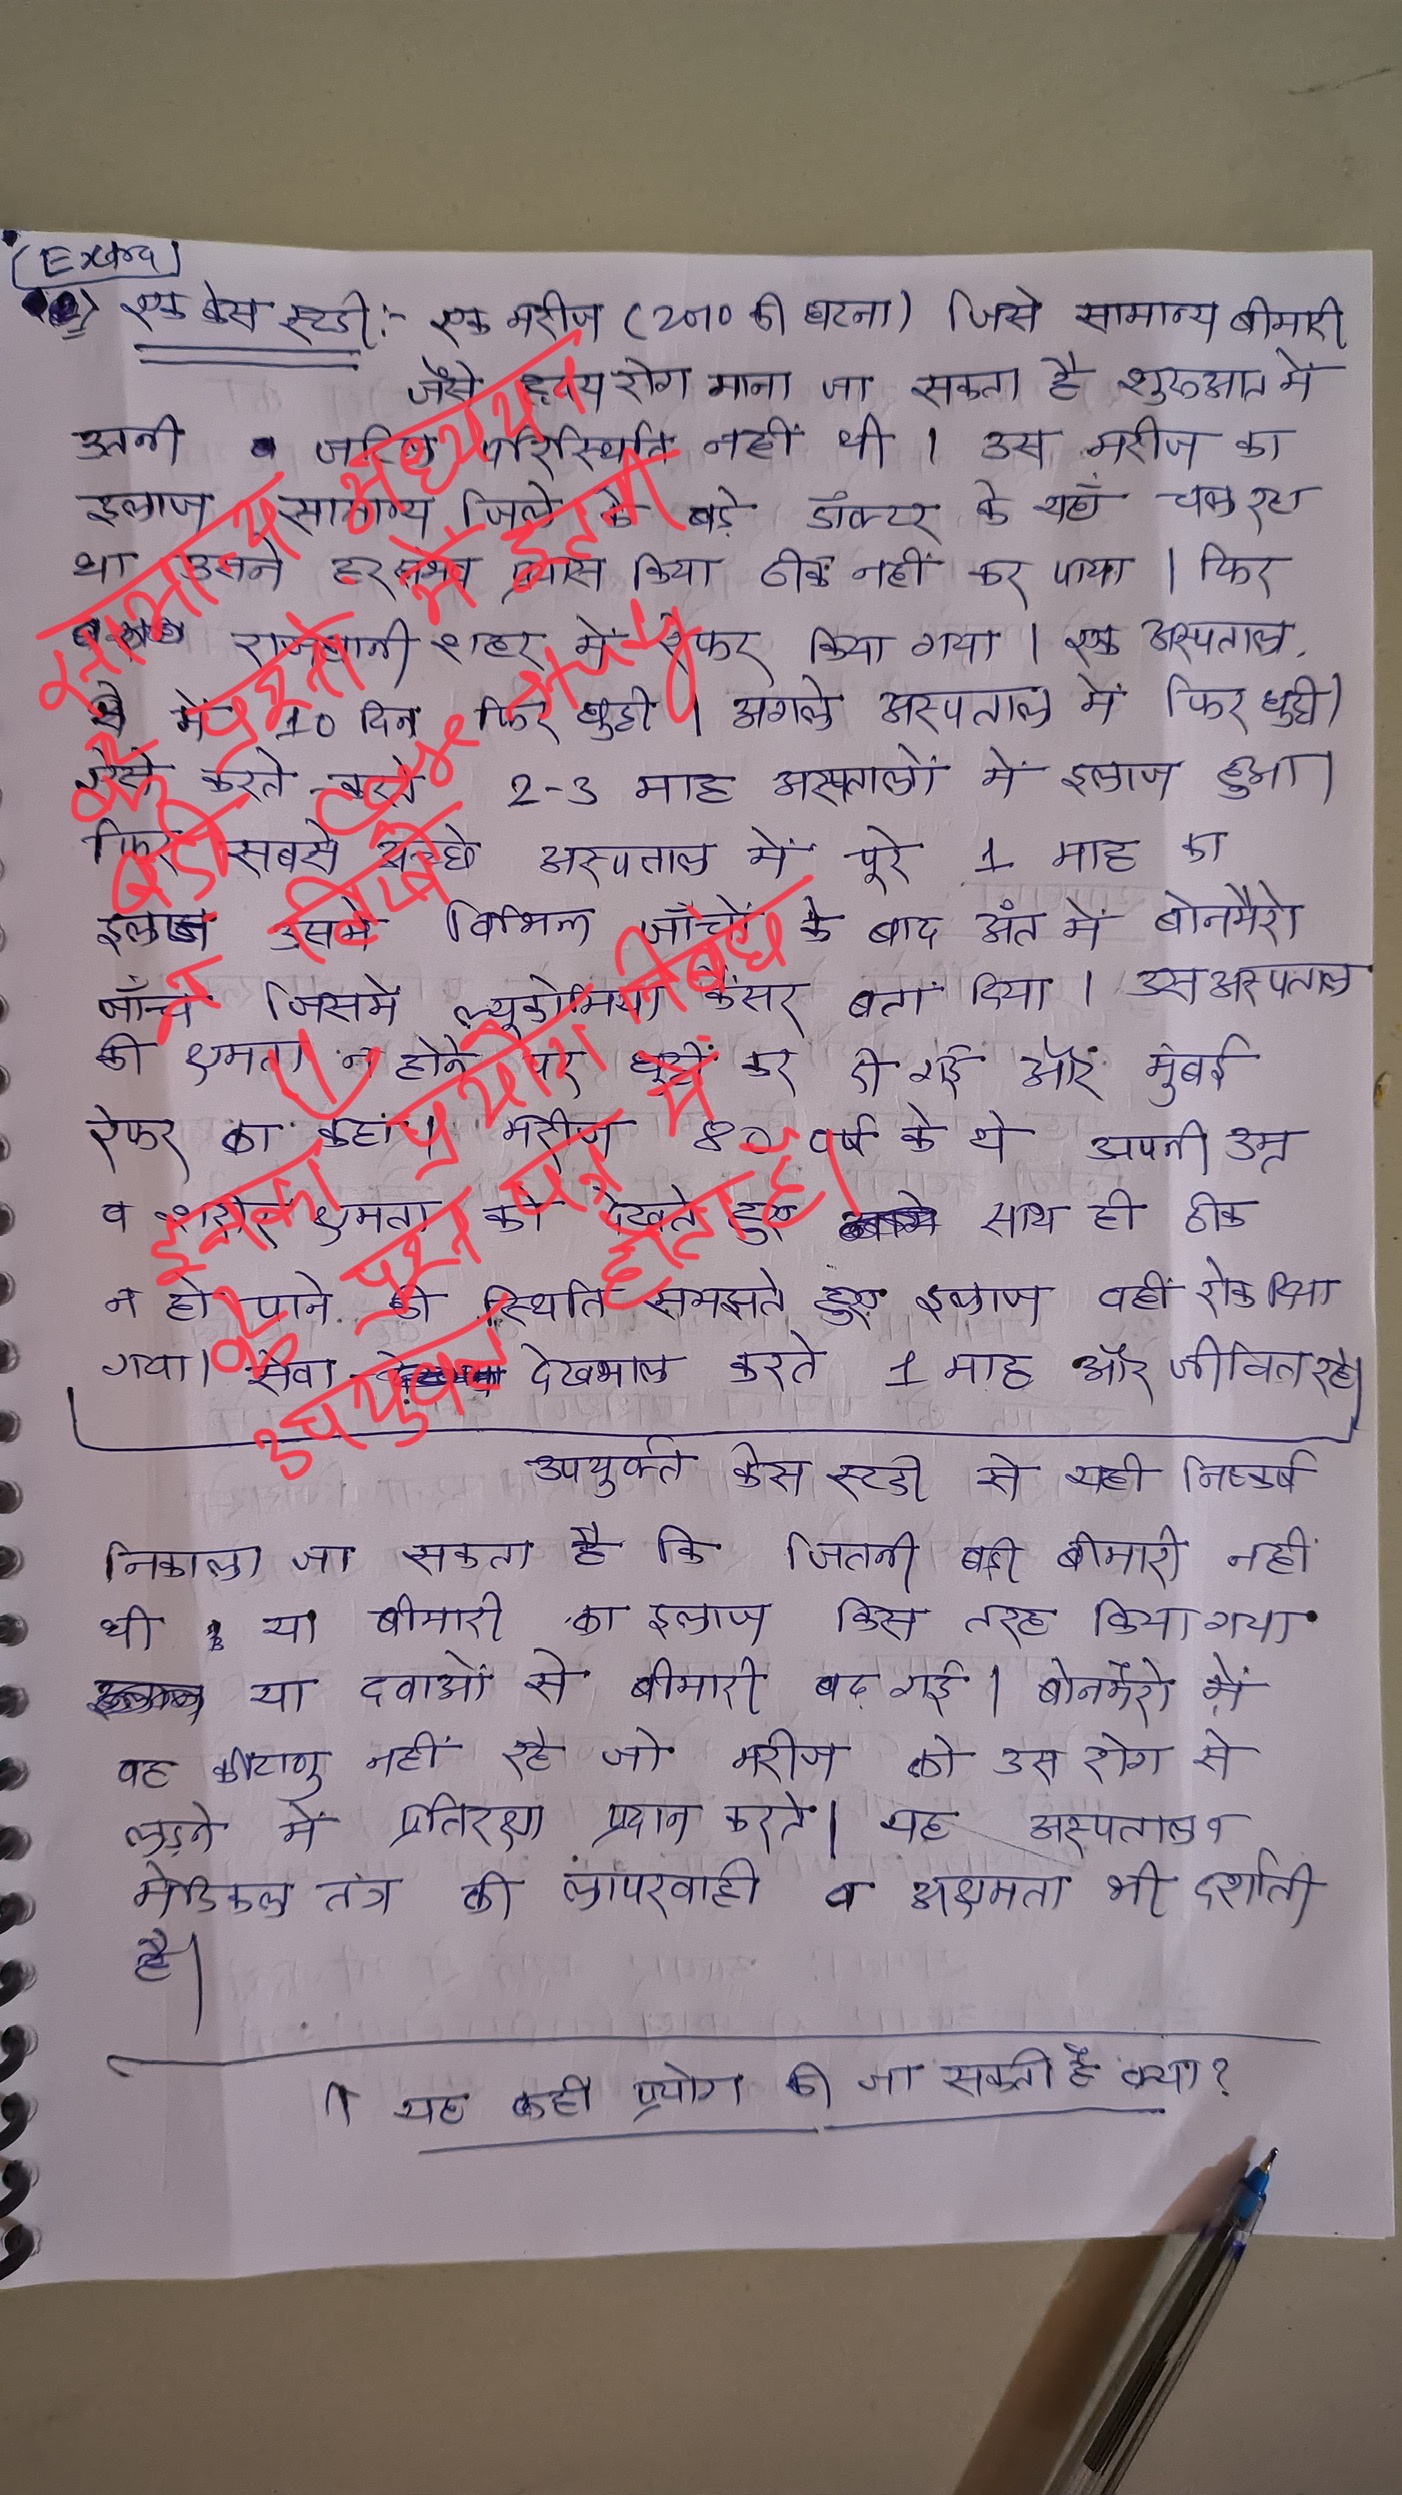 (Extra)
एक केस स्टडी:- एक मरीज (2010 की घटना) जिसे सामान्य बीमारी
जैसे हृदय रोग माना जा सकता है शुरुआत में
उतनी जटिल परिस्थिति नहीं थी । उस मरीज का
इलाज सामान्य जिले के बड़े डॉक्टर के यहाँ चल रहा
था उसने हर संभव प्रयास किया ठीक नहीं कर पाया । फिर
राजधानी शहर में रेफर किया गया । एक अस्पताल
में 10 दिन फिर छुट्टी । अगले अस्पताल में फिर छुट्टी।
ऐसे करते-करते 2-3 माह अस्पतालों में इलाज हुआ।
फिर सबसे अच्छे अस्पताल में पूरे 1 माह का
इलाज उसमे विभिन्न जाँचों के बाद अंत में बोनमैरो
जाँच जिसमें ल्यूकोमिया कैंसर बता दिया । उस अस्पताल
की क्षमता न होने पर छुट्टी कर दी गई और मुंबई
रेफर का कहा। मरीज 80 वर्ष के थे अपनी उम्र
व क्षमता को देखते हुए साथ ही ठीक
न हो पाने की स्थिति समझते हुए इलाज वहीं रोक दिया
गया। सेवा देखभाल करते 1 माह और जीवित रहे।
उपयुर्क्त केस स्टडी से यही निष्कर्ष
निकाला जा सकता है कि जितनी बड़ी बीमारी नहीं
थी या बीमारी का इलाज किस तरह किया गया
या दवाओं से बीमारी बढ़ गई । बोनमैरो में
वह कीटाणु नहीं रहे जो मरीज को उस रोग से
लड़ने में प्रतिरक्षा प्रदान करते। यह अस्पताल व
मेडिकल तंत्र की लापरवाही व अक्षमता भी दर्शाती
है।
↑ यह कहीं प्रयोग की जा सकती है क्या?
सामान्य अध्ययन
के प्रश्नों में इतनी
बड़ी केस स्टडी
न लिखें
इसका प्रयोग निबंध
के प्रश्न पत्र में
उपयुक्त होता है।